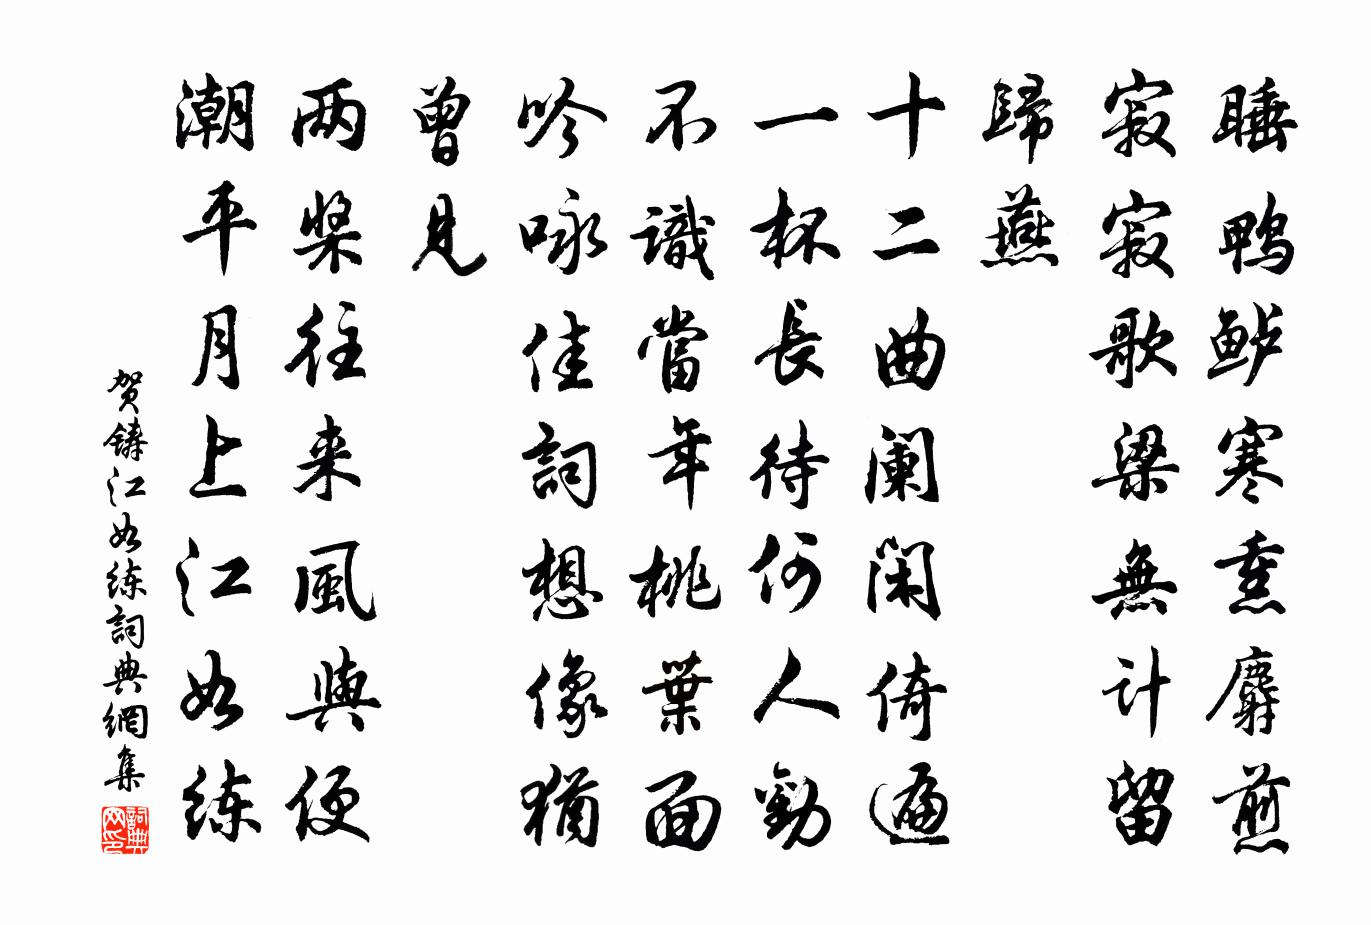 睡鸭鲈寒熏麝煎
寂寂歌梁無计留
歸燕
十二曲阑闲倚遍
一杯長待何人勸
不識當年桃葉面
吟咏佳詞想像猶
曾見
两桨往来風與便
潮平月上江如练
贺鑄江如练詞典網集
詞典网印